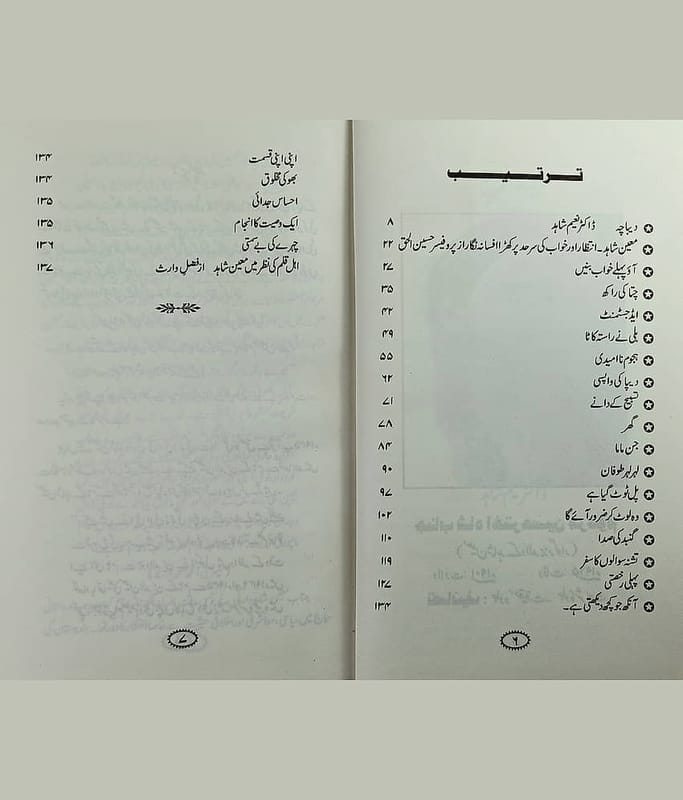 ترتیب
دیباچہ ڈاکٹر نعیم شاہد ۸
معین شاہد۔ انتظار اور خواب کی سرحد پر کھڑا افسانہ نگار از پروفیسر حسین الحق ۲۲
آؤ پہلے خواب بنیں ۲۷
چتا کی راکھ ۳۵
ایڈجسٹمنٹ ۴۲
بلی نے راستہ کاٹا ۴۹
ہجوم ناامیدی ۵۵
دیپا کی واپسی ۶۲
تسبیح کے دانے ۷۱
گھر ۷۸
جن ماما ۸۴
لہر لہر طوفان ۹۰
پل ٹوٹ گیا ہے ۹۷
وہ لوٹ کر ضرور آئے گا ۱۰۲
گنبد کی صدا ۱۱۰
تشنہ سوالوں کا سفر ۱۱۹
پہلی رخصتی ۱۲۷
آنکھ جو کچھ دیکھتی ہے۔ ۱۳۴
۶
اپنی اپنی قسمت ۱۳۴
بھوکی مخلوق ۱۳۴
احساس جدائی ۱۳۵
ایک وصیت کا انجام ۱۳۵
چہرے کی بے سمتی ۱۳۶
اہل قلم کی نظر میں معین شاہد از فصلِ وارث ۱۳۷
۷